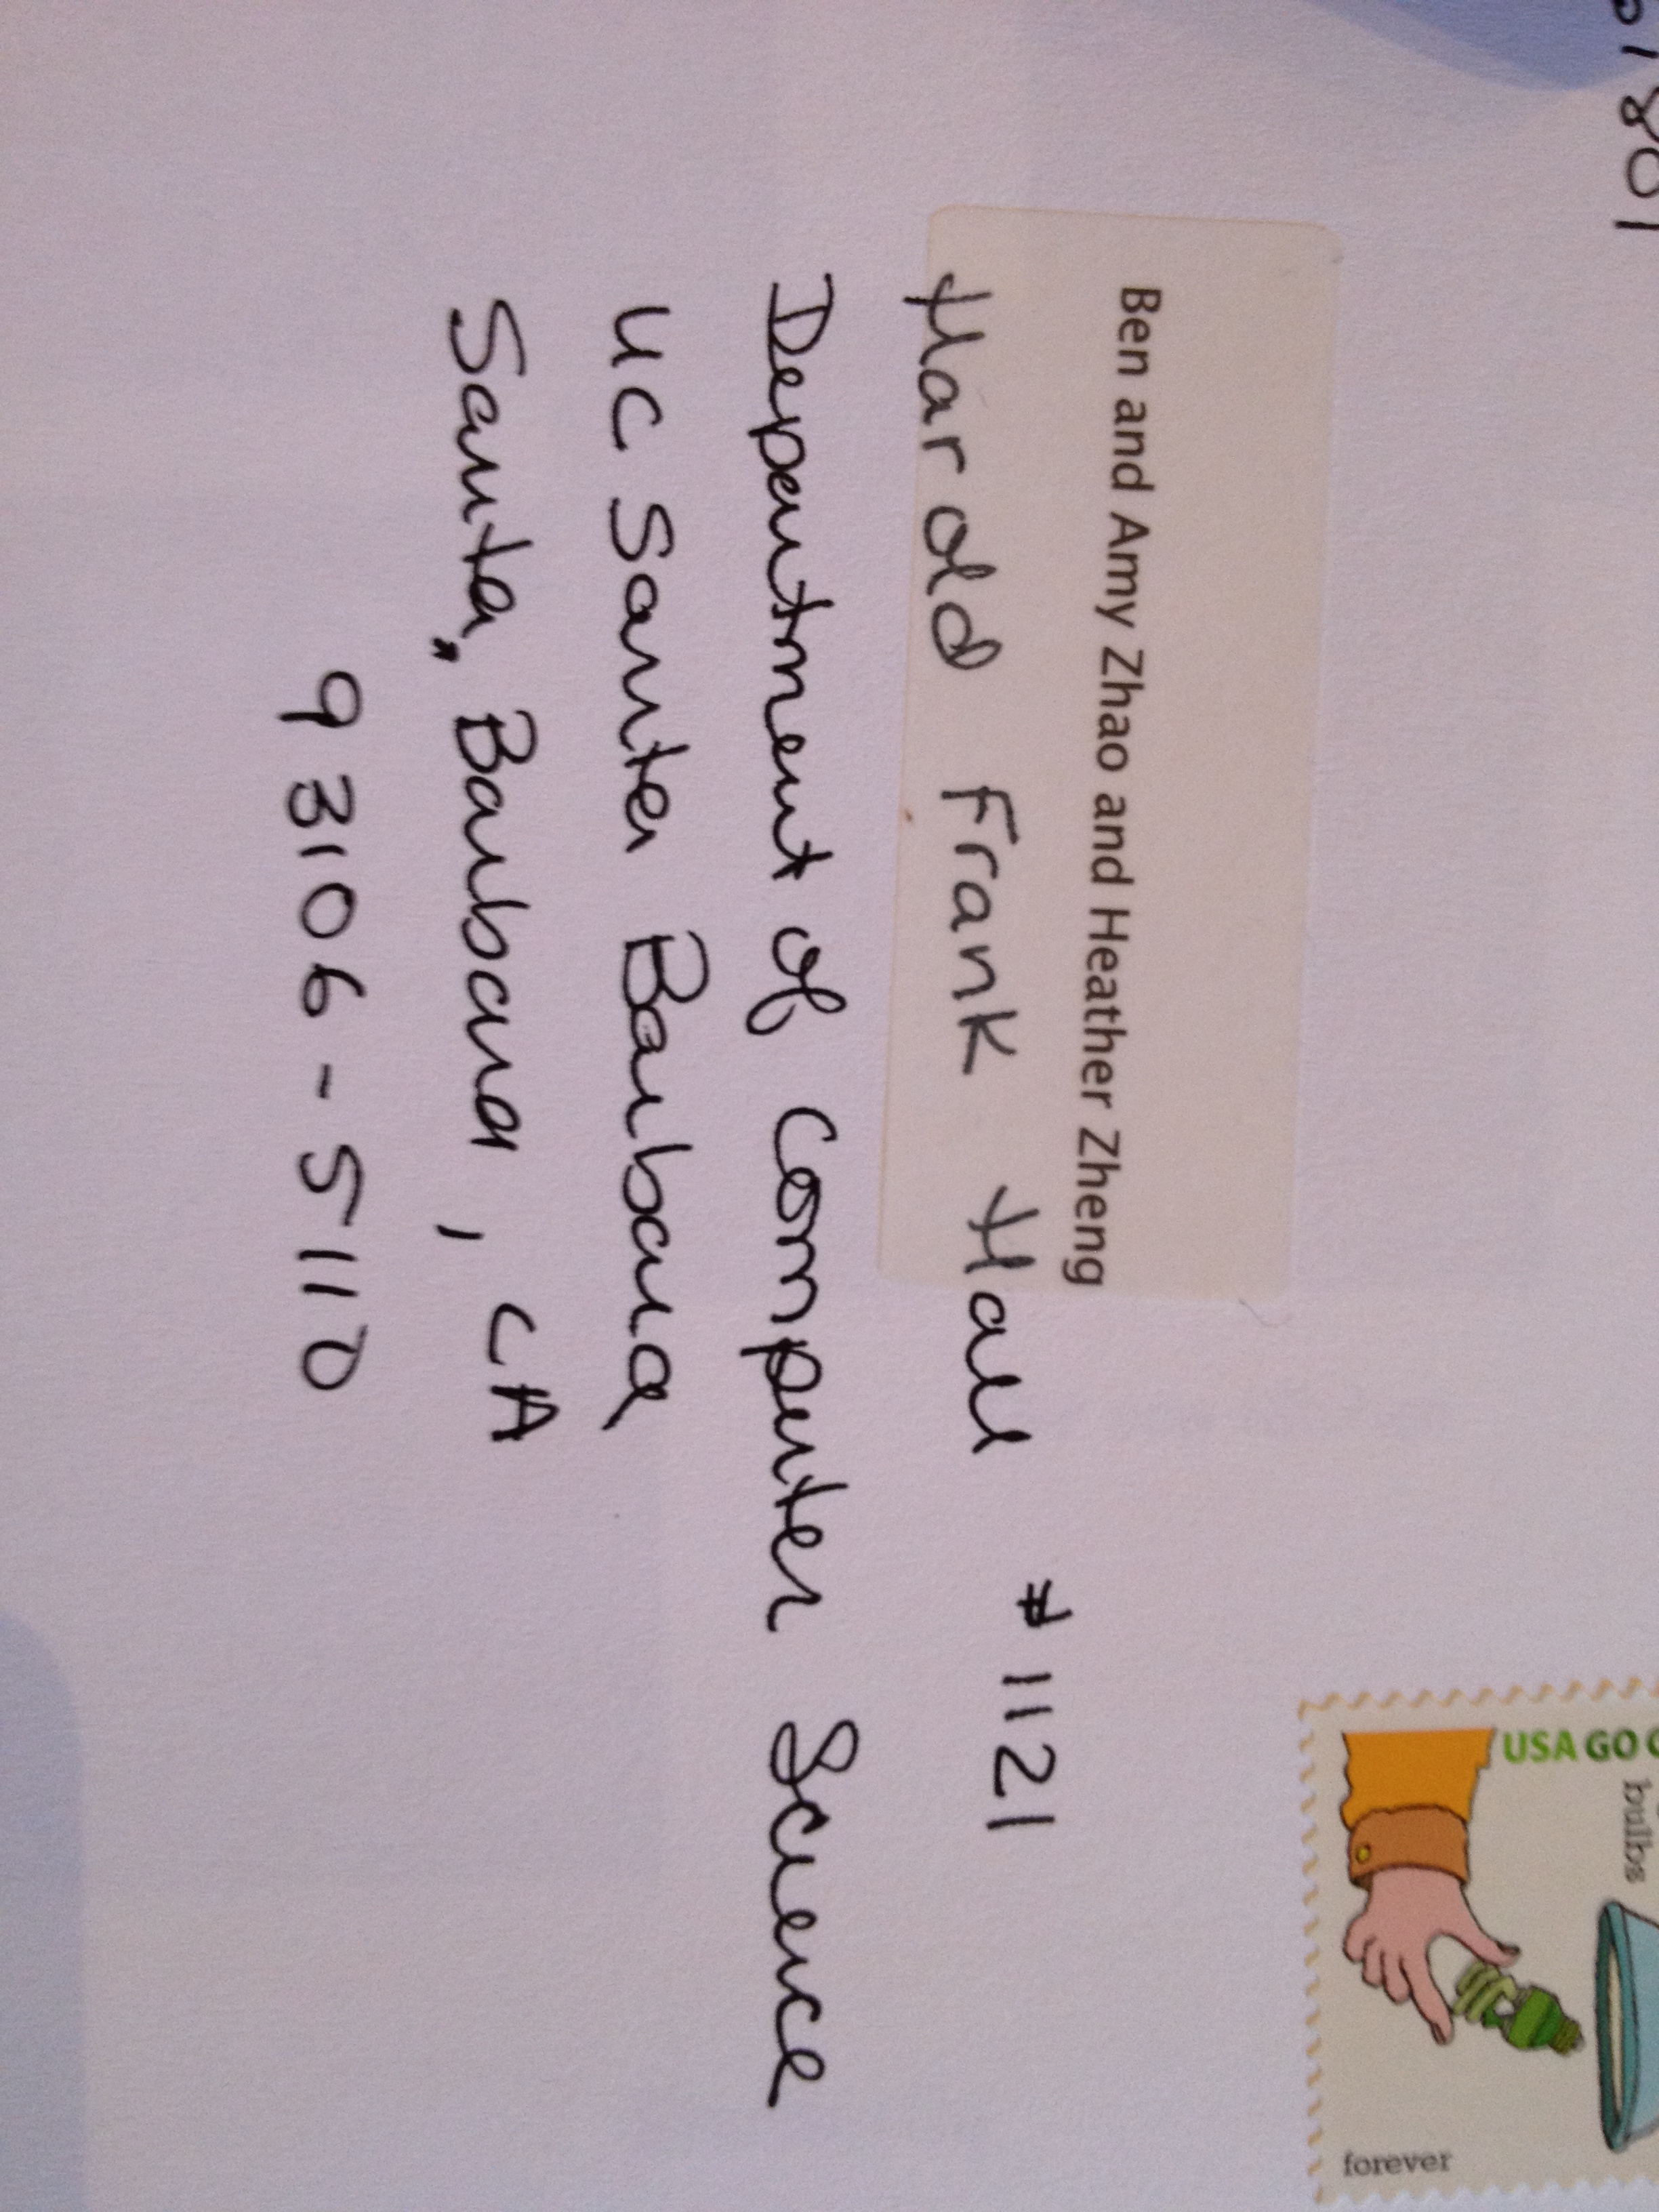 01801
USA GO
bulbs
forever
Ben and Amy Zhao and Heather Zheng
Harold Frank Hall #1121
Department of Computer Science
UC Santa Barbara
Santa, Barbara, CA
93106-5110